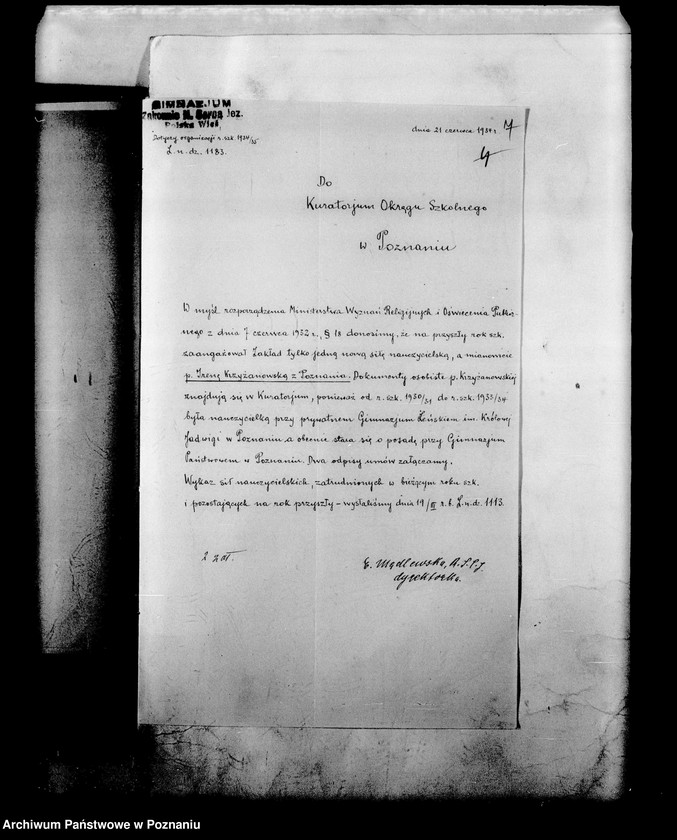 GIMNAZJUM
Zakonnic N. Serca Jez.
Polska Wieś
dnia 21 czerwca 1934 r.
7
Dotyczy organizacji r. szk. 1934/35
L. n. dz. 1183.
4
Do
Kuratorjum Okręgu Szkolnego
w Poznaniu
W myśl rozporządzenia Ministerstwa Wyznań Religijnych i Oświecenia Publicz-
nego z dnia 7 czerwca 1932 r., § 18 donosimy, że na przyszły rok szk.
zaangażował Zakład tylko jedną nową siłę nauczycielską, a mianowicie
p. Irenę Krzyżanowską z Poznania. Dokumenty osobiste p. Krzyżanowskiej
znajdują się w Kuratorjum, ponieważ od r. szk. 1930/31 do r. szk. 1933/34
była nauczycielką przy prywatnem Gimnazjum Żeńskiem im. Królowej
Jadwigi w Poznaniu a obecnie stara się o posadę przy Gimnazjum
Państwowem w Poznaniu. Dwa odpisy umów załączamy.
Wykaz sił nauczycielskich, zatrudnionych w bieżącym roku szk.
i pozostających na rok przyszły – wysłaliśmy dnia 19/ r. b. L. n. dz. 1113.
2 zał.
E. Mądlewska, R.S.C.J.
dyrektorka.
Archiwum Państwowe w Poznaniu